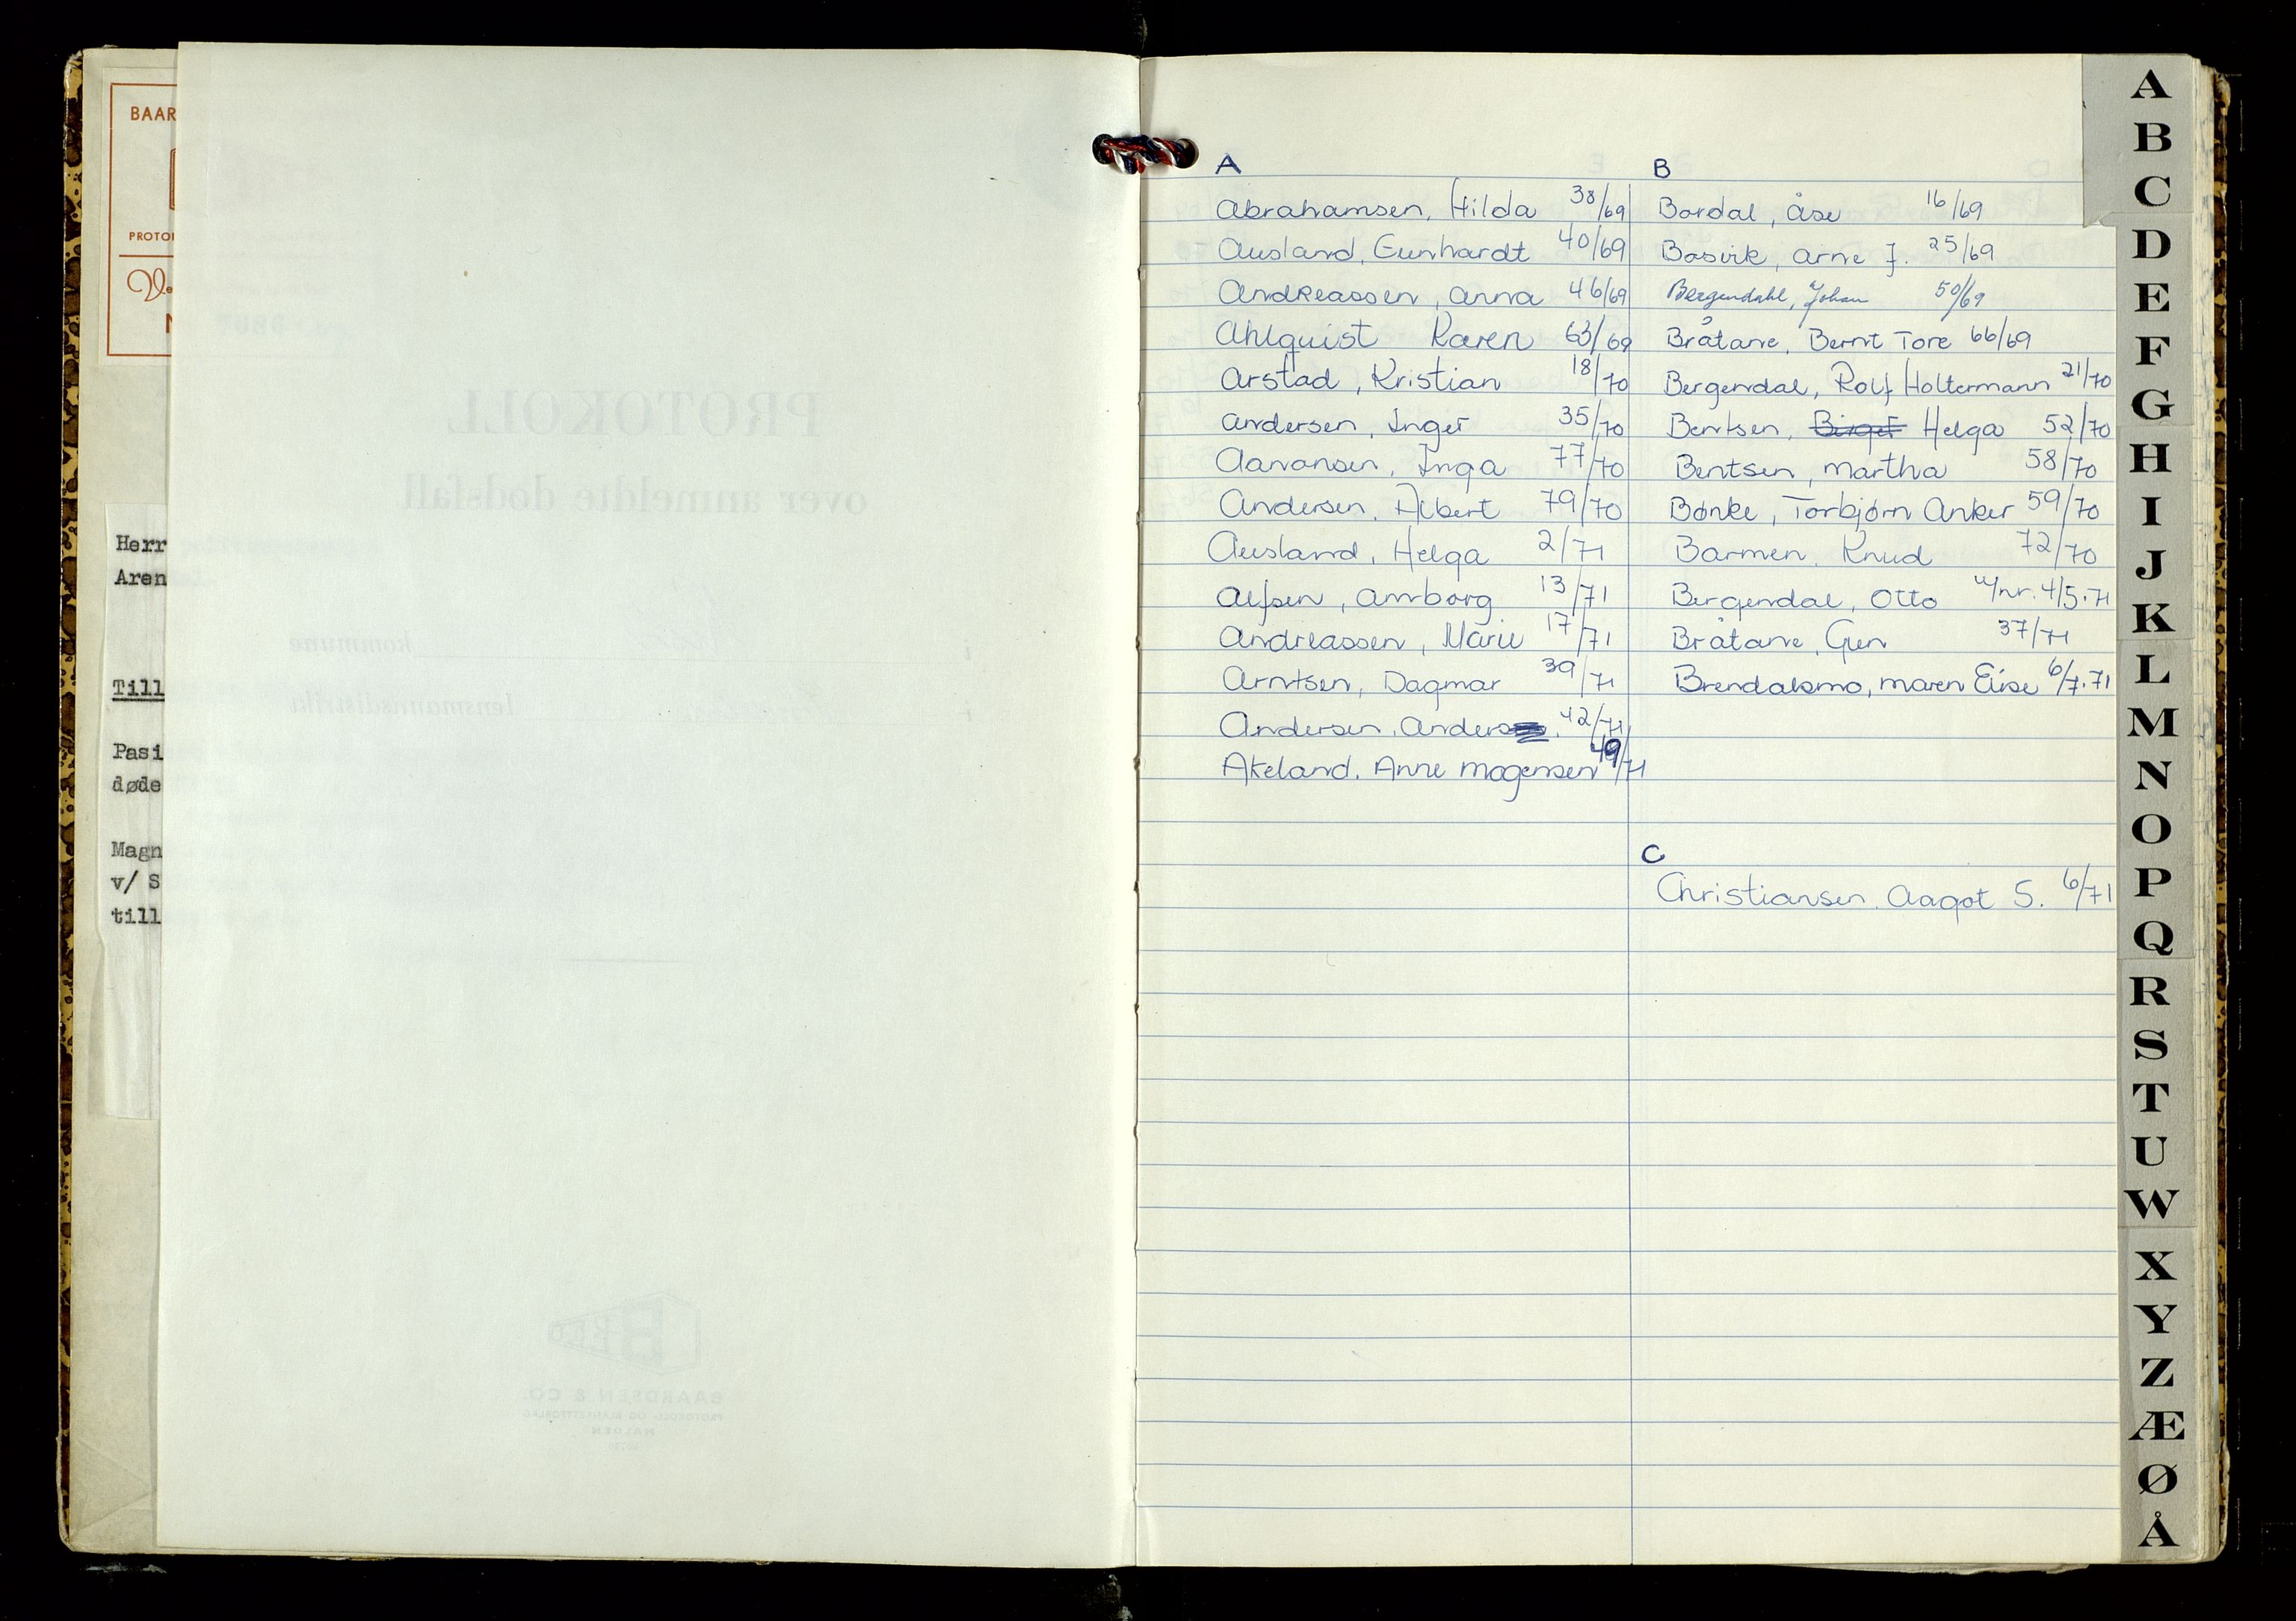 BAAR
PROTO
Herr
Aren
Till
Pasi
døde
Magn
v/ S
till
PROTOKOLL
over anmeldte dødsfall
i kommune
i lensmannsdistrikt
BAARDSEN & CO.
PROTOKOLL- OG BLANKETTFORLAG
HALDEN
A
Abrahamsen, Hilda 38/69
Ausland, Gunhardt 40/69
Andreassen, Anna 46/69
Ahlquist Karen 63/69
Arstad, Kristian 18/70
Andersen, Inger 35/70
Aaronsen, Inga 77/70
Andersen, Albert 79/70
Ausland, Helga 2/71
Alfsen, Annborg 13/71
Andreassen, Marie 17/71
Arntsen, Dagmar 39/71
Andersen, Anders 42/71
Akeland. Anne Mogensen 49/71
B
Bordal, Åse 16/69
Bosvik, Arne J. 25/69
Bergendahl, Johan 50/69
Bråtane, Bernt Tore 66/69
Bergendal, Rolf Holtermann 21/70
Bentsen, Birget Helga 52/70
Bentsen, Martha 58/70
Bønke, Torbjørn Anker 59/70
Barmen, Knud 72/70
Bergendal, Otto u/nr. 4/5.71
Bråtane, Gun 37/71
Brendalsmo, Maren Elise 6/7.71
C
Christiansen, Aagot S. 6/71
A
B
C
D
E
F
G
H
I
J
K
L
M
N
O
P
Q
R
S
T
U
W
X
Y
Z
Æ
Ø
Å